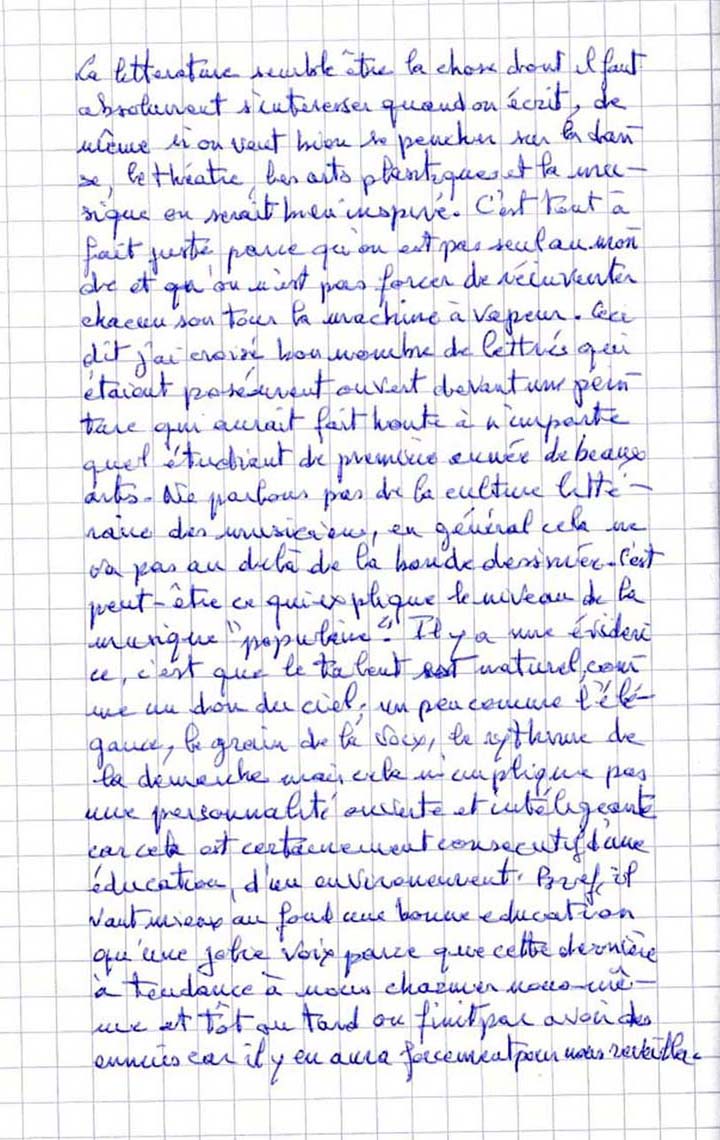 La litterature semble être la chose dont il faut
absolument s'interesser quand on écrit, de
même si on veut bien se pencher sur la dan
se, le théatre, les arts plastiques et la mu-
sique on serait bien inspiré. C'est tout à
fait juste parce qu'on est pas seul au mon
de et qu'on n'est pas forcer de réinventer
chacun son tour la machine à vapeur. Ceci
dit j'ai croisé bon nombre de lettrés qui
étaient posément ouvert devant une pein
ture qui aurait fait honte à n'importe
quel étudiant de première année de beaux
arts. Ne parlons pas de la culture litté-
raire des musiciens, en général cela ne
va pas au delà de la bande dessinée. C'est
peut-être ce qui explique le niveau de la
musique "populaire". Il y a une éviden
ce, c'est que le talent est naturel, com
me un don du ciel, un peu comme l'élé-
gance, le grain de la voix, le rythme de
la demarche mais cela n'implique pas
une personnalité ouverte et intéligeante
car cela est certainement consecutif d'une
éducation, d'un environement. Bref, il
vaut mieux au fond une bonne education
qu'une jolie voix parce que cette dernière
à tendance à nous charmer nous-mê-
me et tôt ou tard on finit par avoir des
ennuis car il y en aura forcement pour nous reveiller.